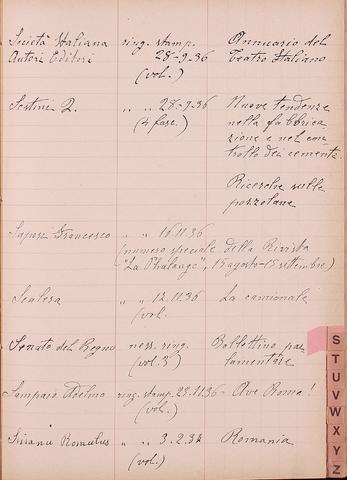 Società Italiana ring. stamp. Annuario del
Autori Editori 28-9-36 Teatro Italiano
(vol.)
Sestini Q. " " 28-9-36 Nuove tendenze
(4 fasc.) nella fabbrica-
zione e nel con-
trollo dei cementi.
Ricerche sulle
pozzolane
Francesco " " 16.11.36
(numero speciale della Rivista
"La Phalange", 15 agosto-15 settembre)
Scalesa " " 12.11.36 La camionale
(vol.
Senato del Regno ness. ring. Bollettino par-
(vol. 3°) lamentare
Sampaio Adelmo ring. stamp. 23.11.36 - Ave Roma!
(vol.)
Romulus " " 3.2.37 Romania
(vol.)
S
T
U
V
W
X
Y
Z